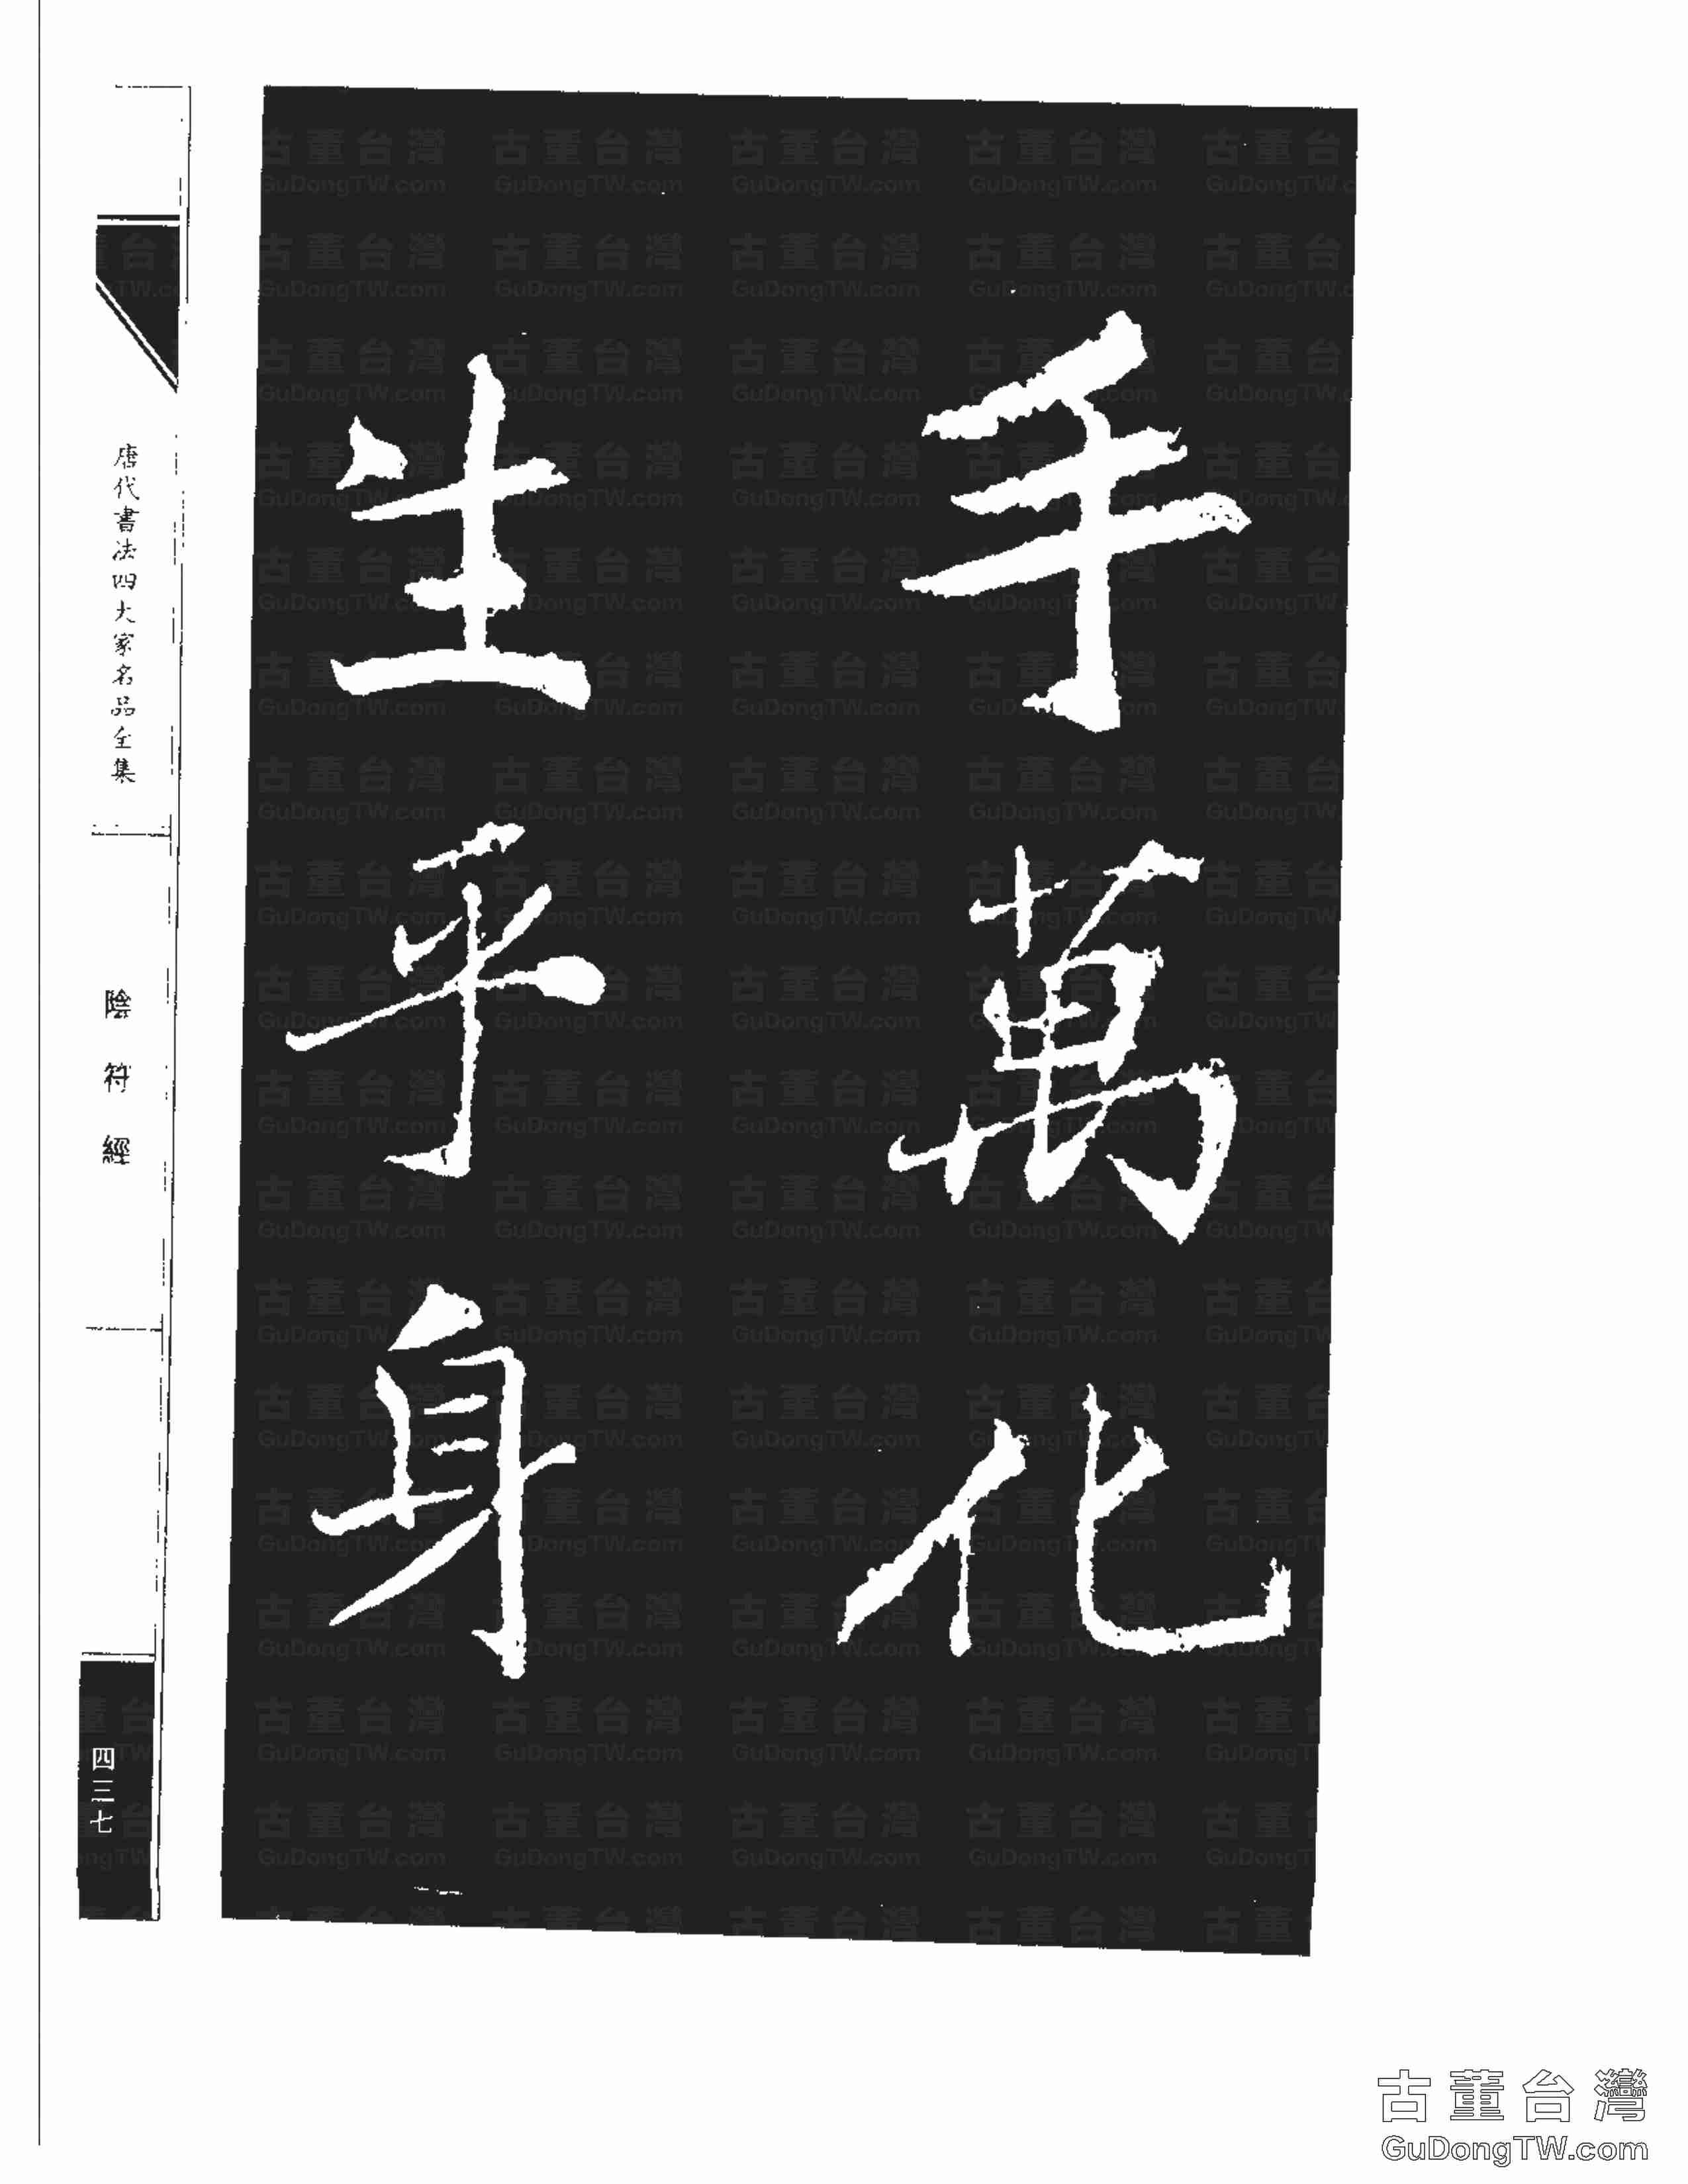 手萬化
生乎身
唐代書法四大家名品全集
陰符經
四三七
古董台灣
GuDongTW.com